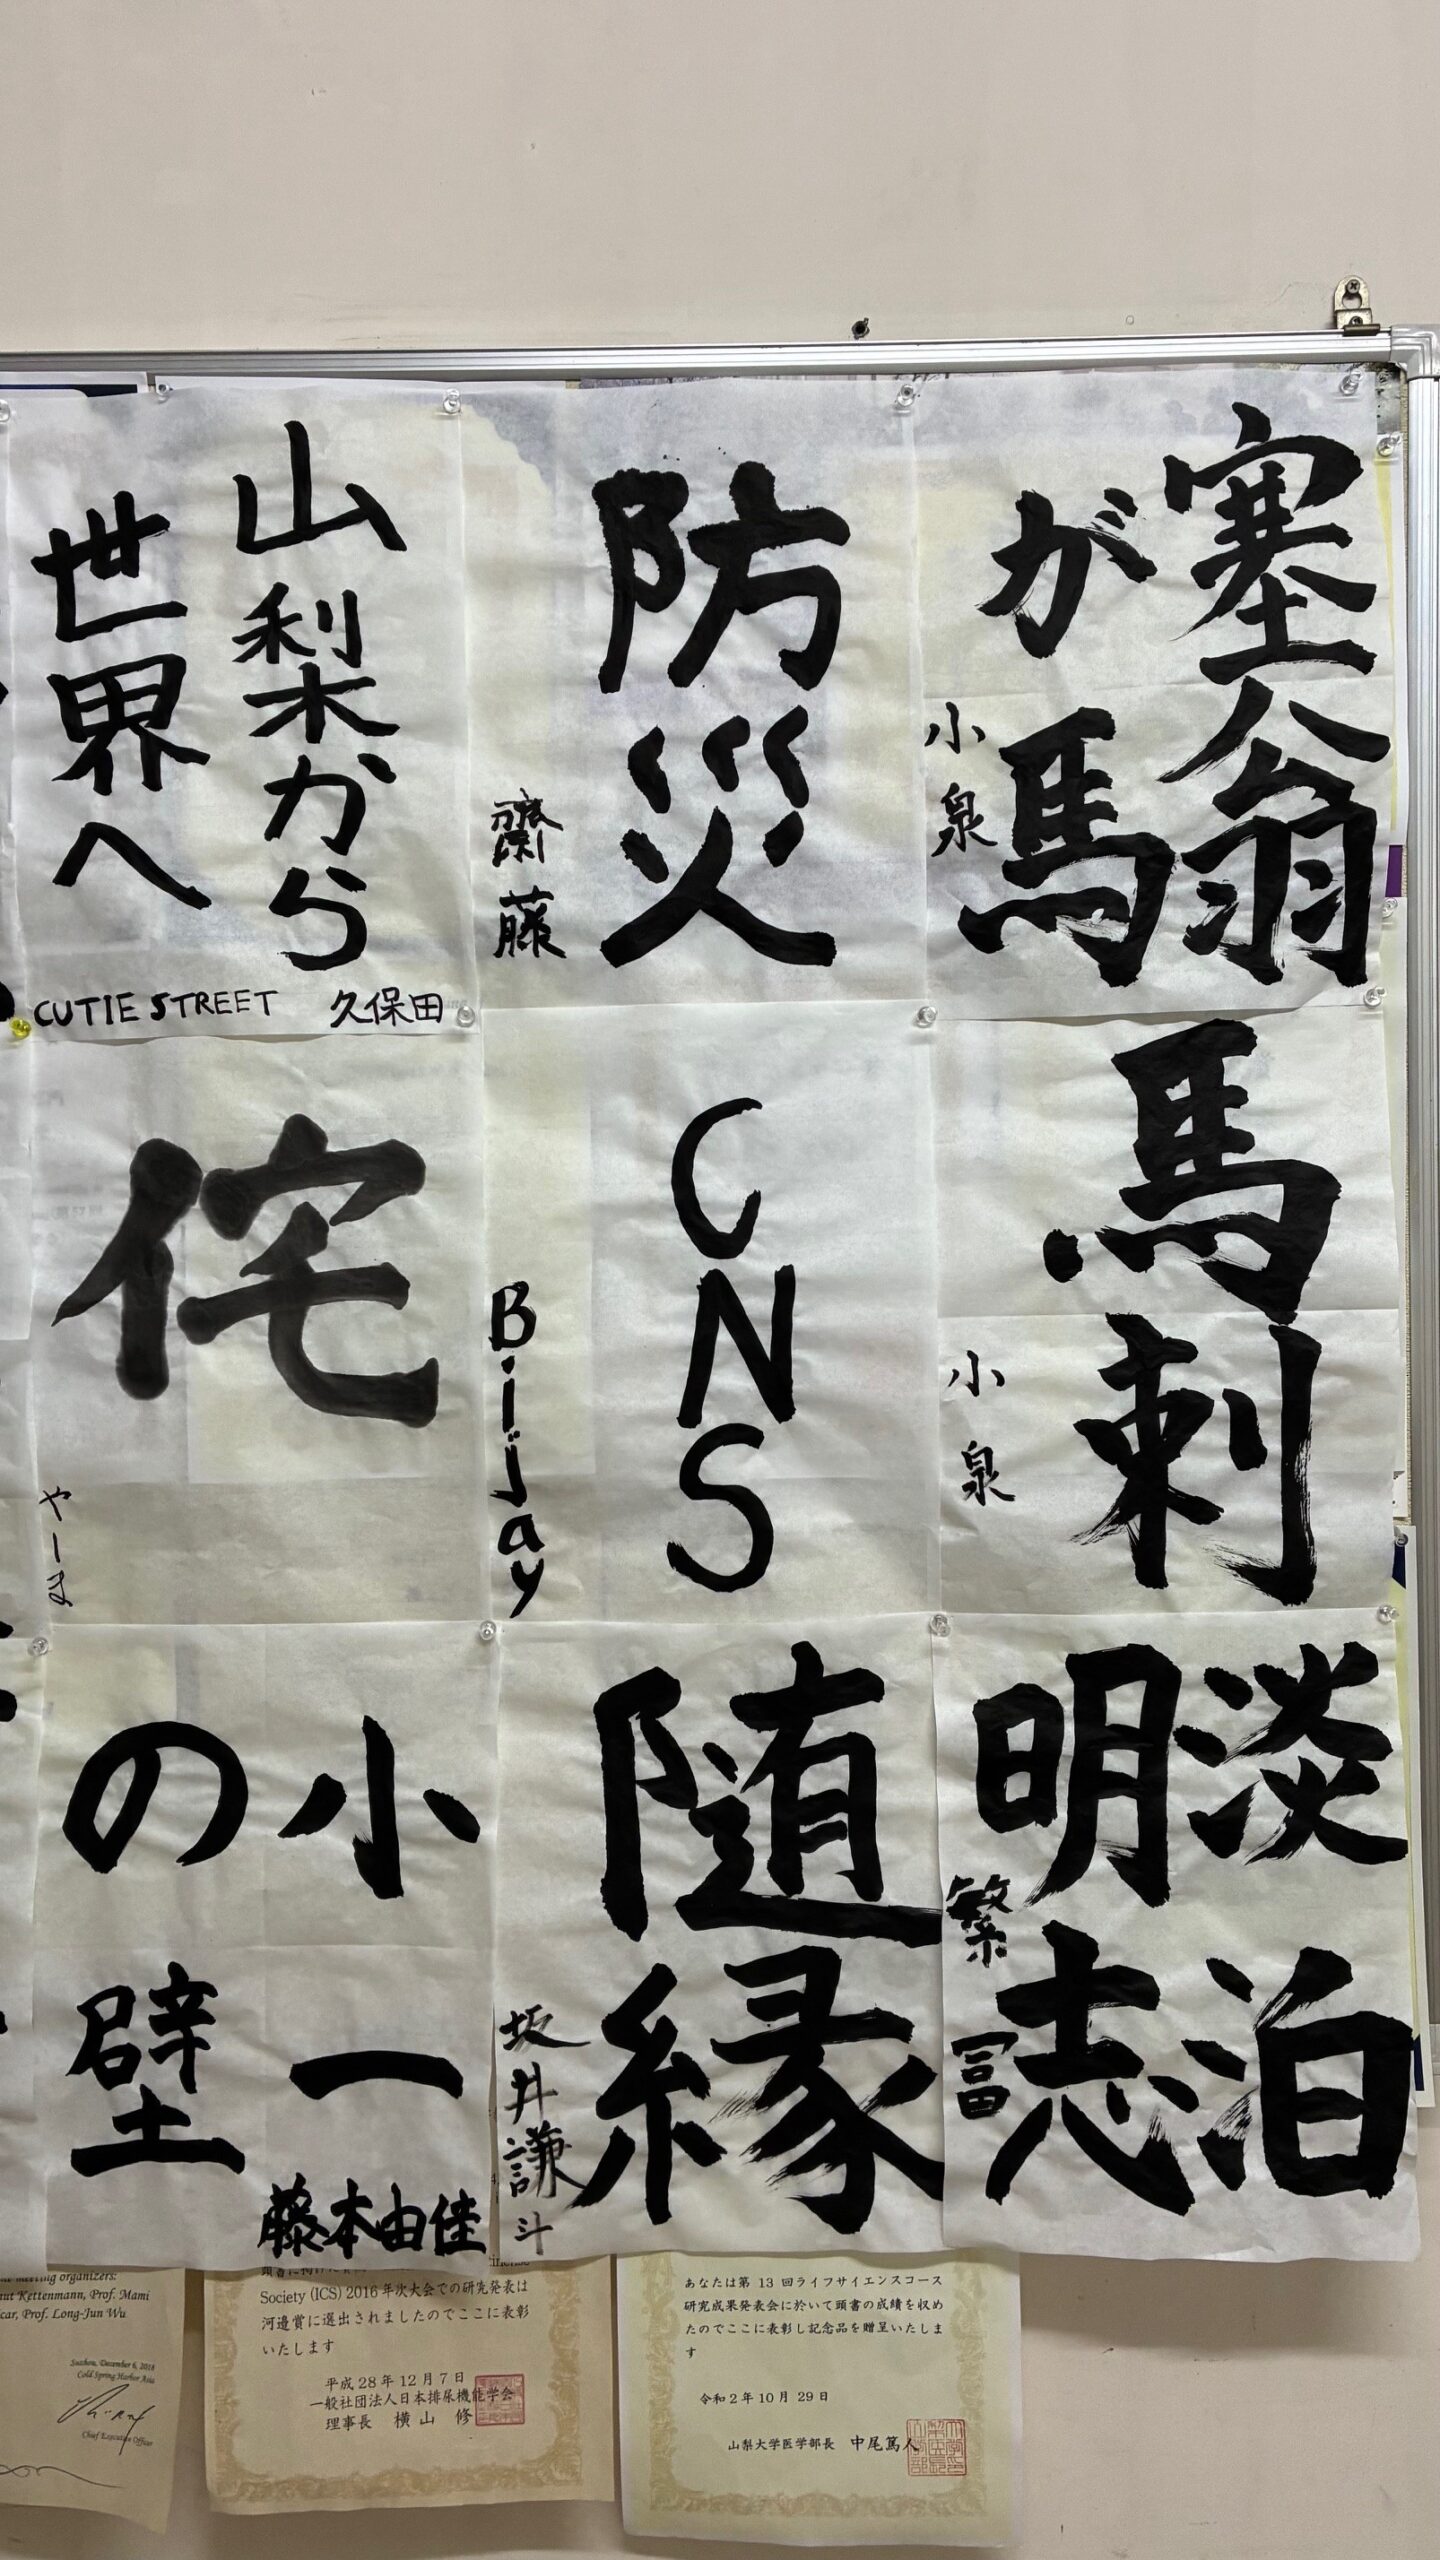 塞翁
が馬
小泉
防災
齋藤
山梨から
世界へ
CUTIE STREET 久保田
馬刺
小泉
CNS
Bijay
侘
やーま
淡泊
明志
繁冨
随縁
坂井謙斗
小一
の壁
藤本由佳
meeting organizers:
Kettenmann, Prof. Mami
Prof. Long-Jun Wu
Suzhou, December 6, 2018
Cold Spring Harbor Asia
Chief Executive Officer
Society (ICS) 2016年次大会での研究発表は
河邉賞に選出されましたのでここに表彰
いたします
平成28年12月7日
一般社団法人日本排尿機能学会
理事長 横山 修
あなたは第13回ライフサイエンスコース
研究成果発表会に於いて頭書の成績を収め
たのでここに表彰し記念品を贈呈いたしま
す
令和2年10月29日
山梨大学医学部長 中尾篤人